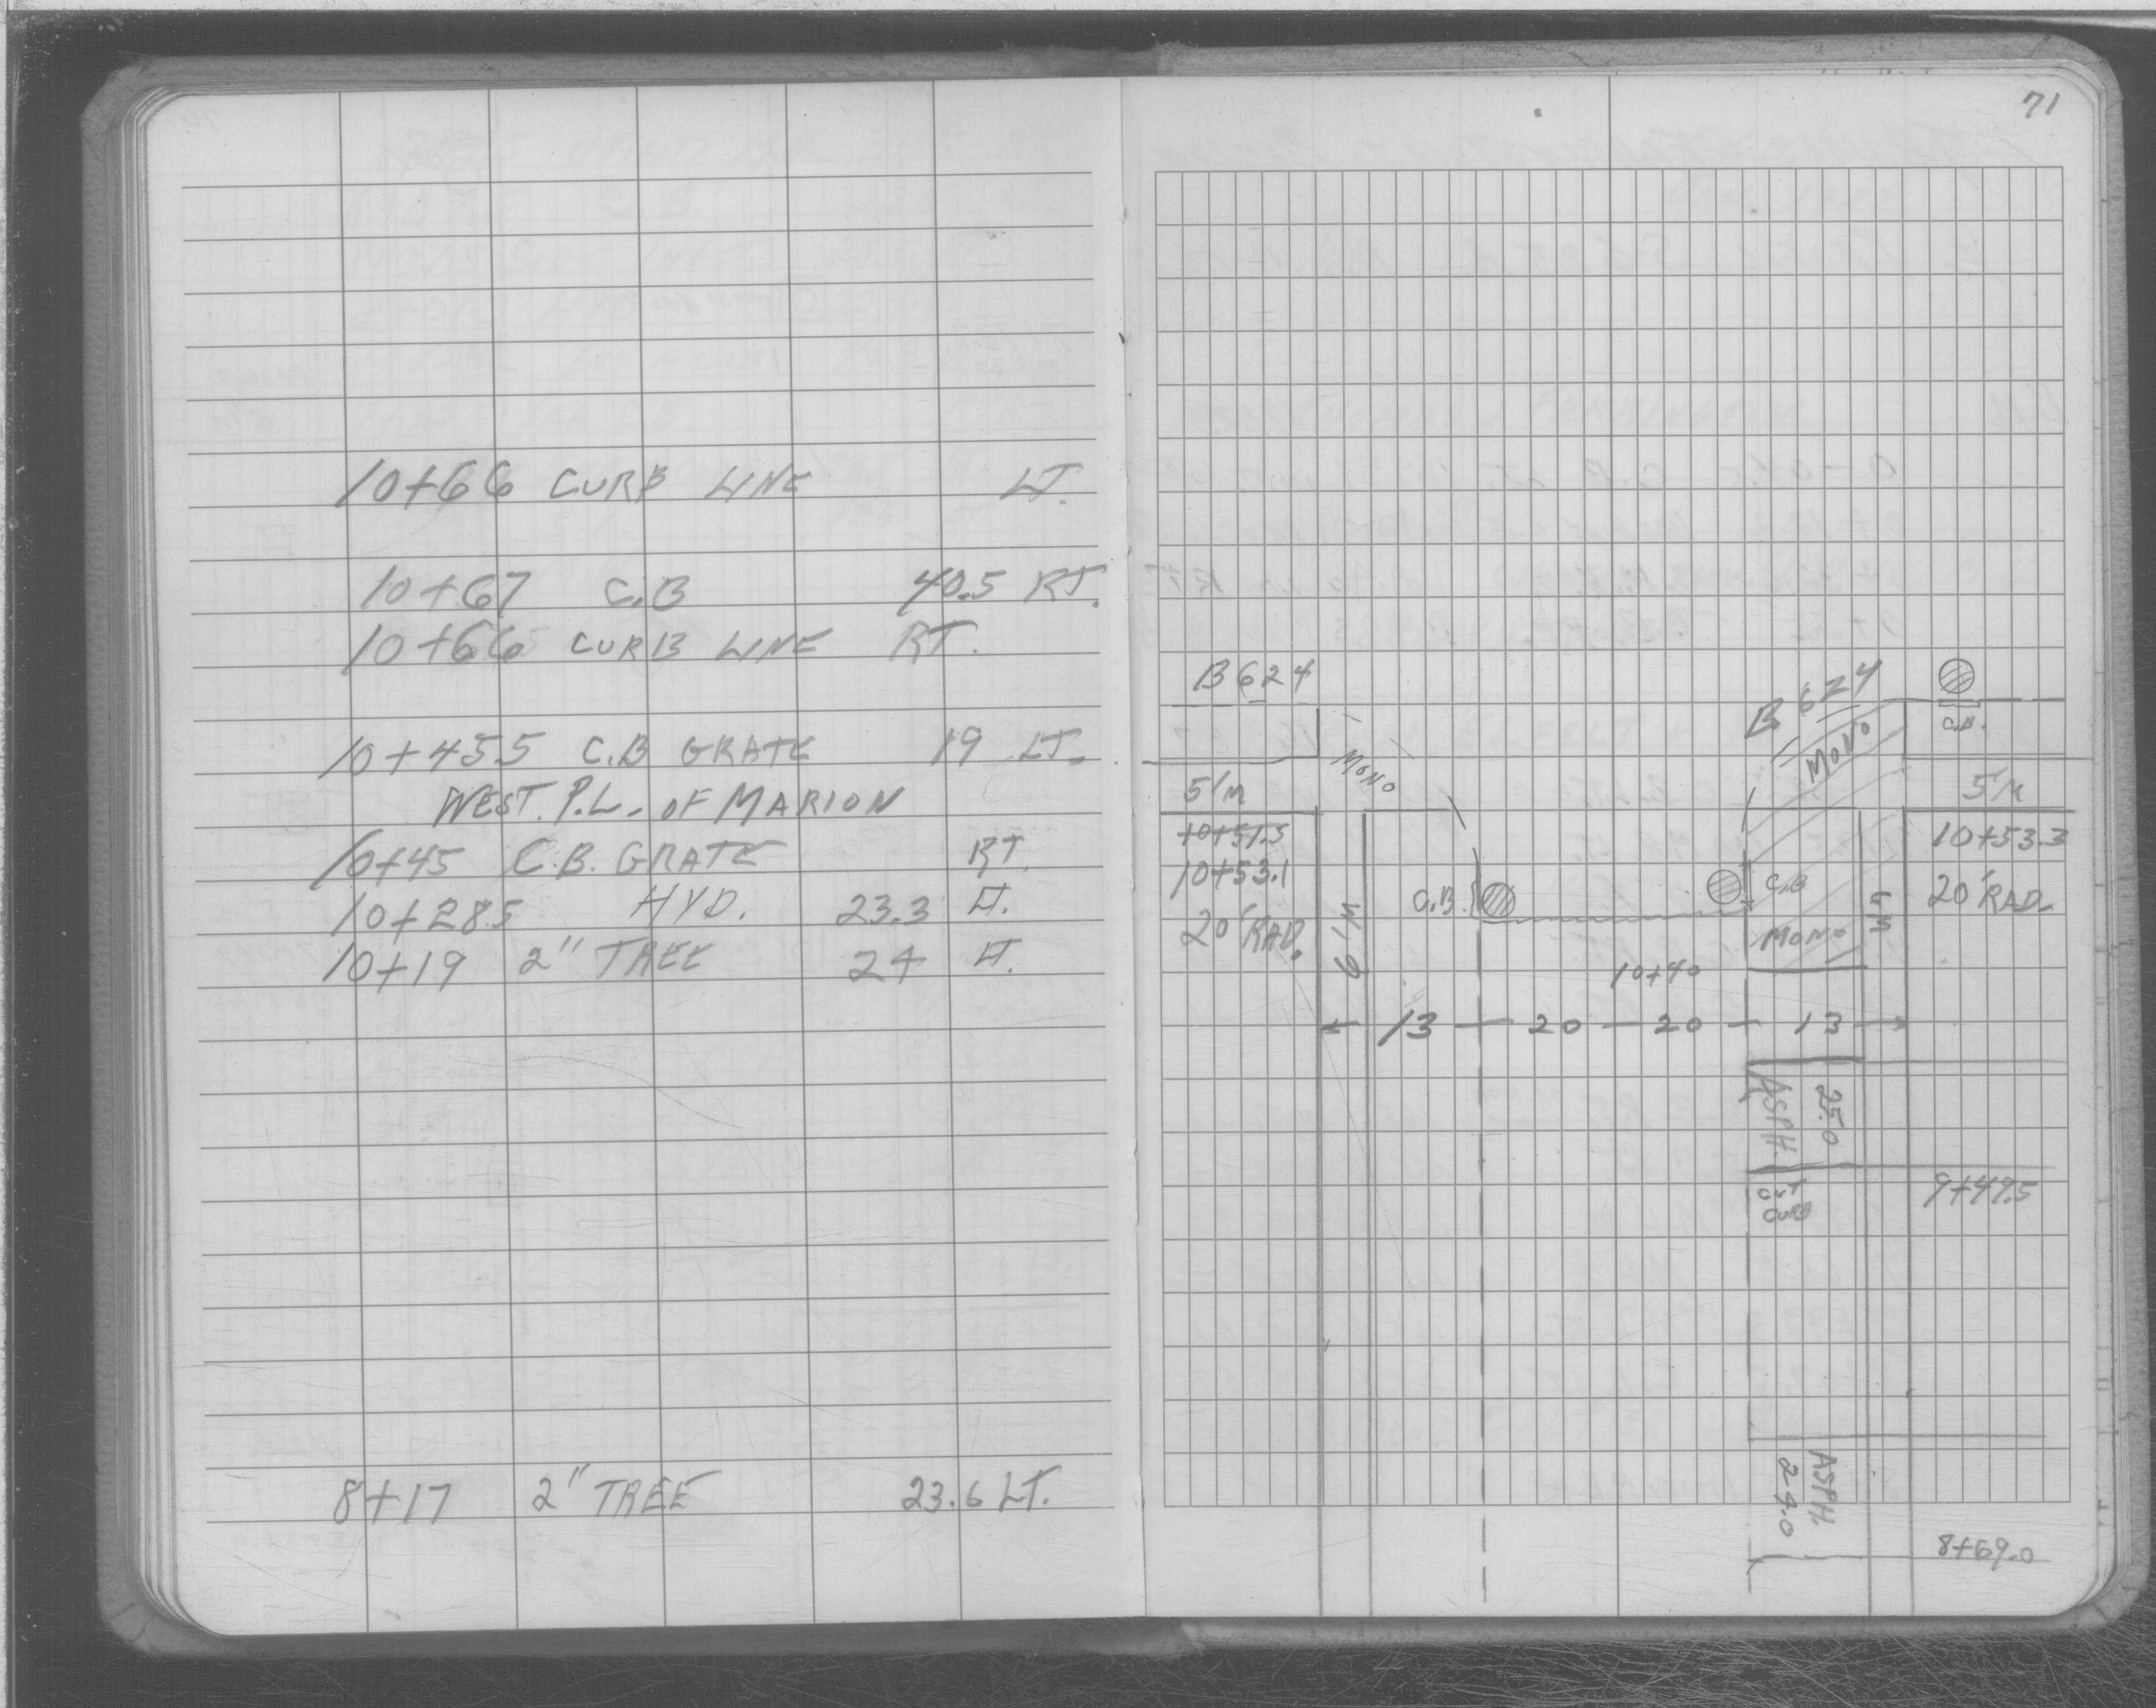 10+66 CURB LINE LT.
10+67 C.B 40.5 RT.
10+66 CURB LINE RT.
10+45.5 C.B GRATE 19 LT.
WEST. P.L. OF MARION
10+45 C.B. GRATE RT.
10+28.5 HYD. 23.3 LT.
10+19 2" TREE 24 LT.
8+17 2" TREE 23.6 LT.
71
B624
B 624
MONO
MONO
C.B.
5'M
5'M
10+51.5
10+53.3
10+53.1
20' RAD.
20' RAD.
C.B.
C.B
MONO
10+40
13 20 20 13
ASPH.
25.0
CUT
CURB
9+49.5
ASPH.
24.0
8+69.0